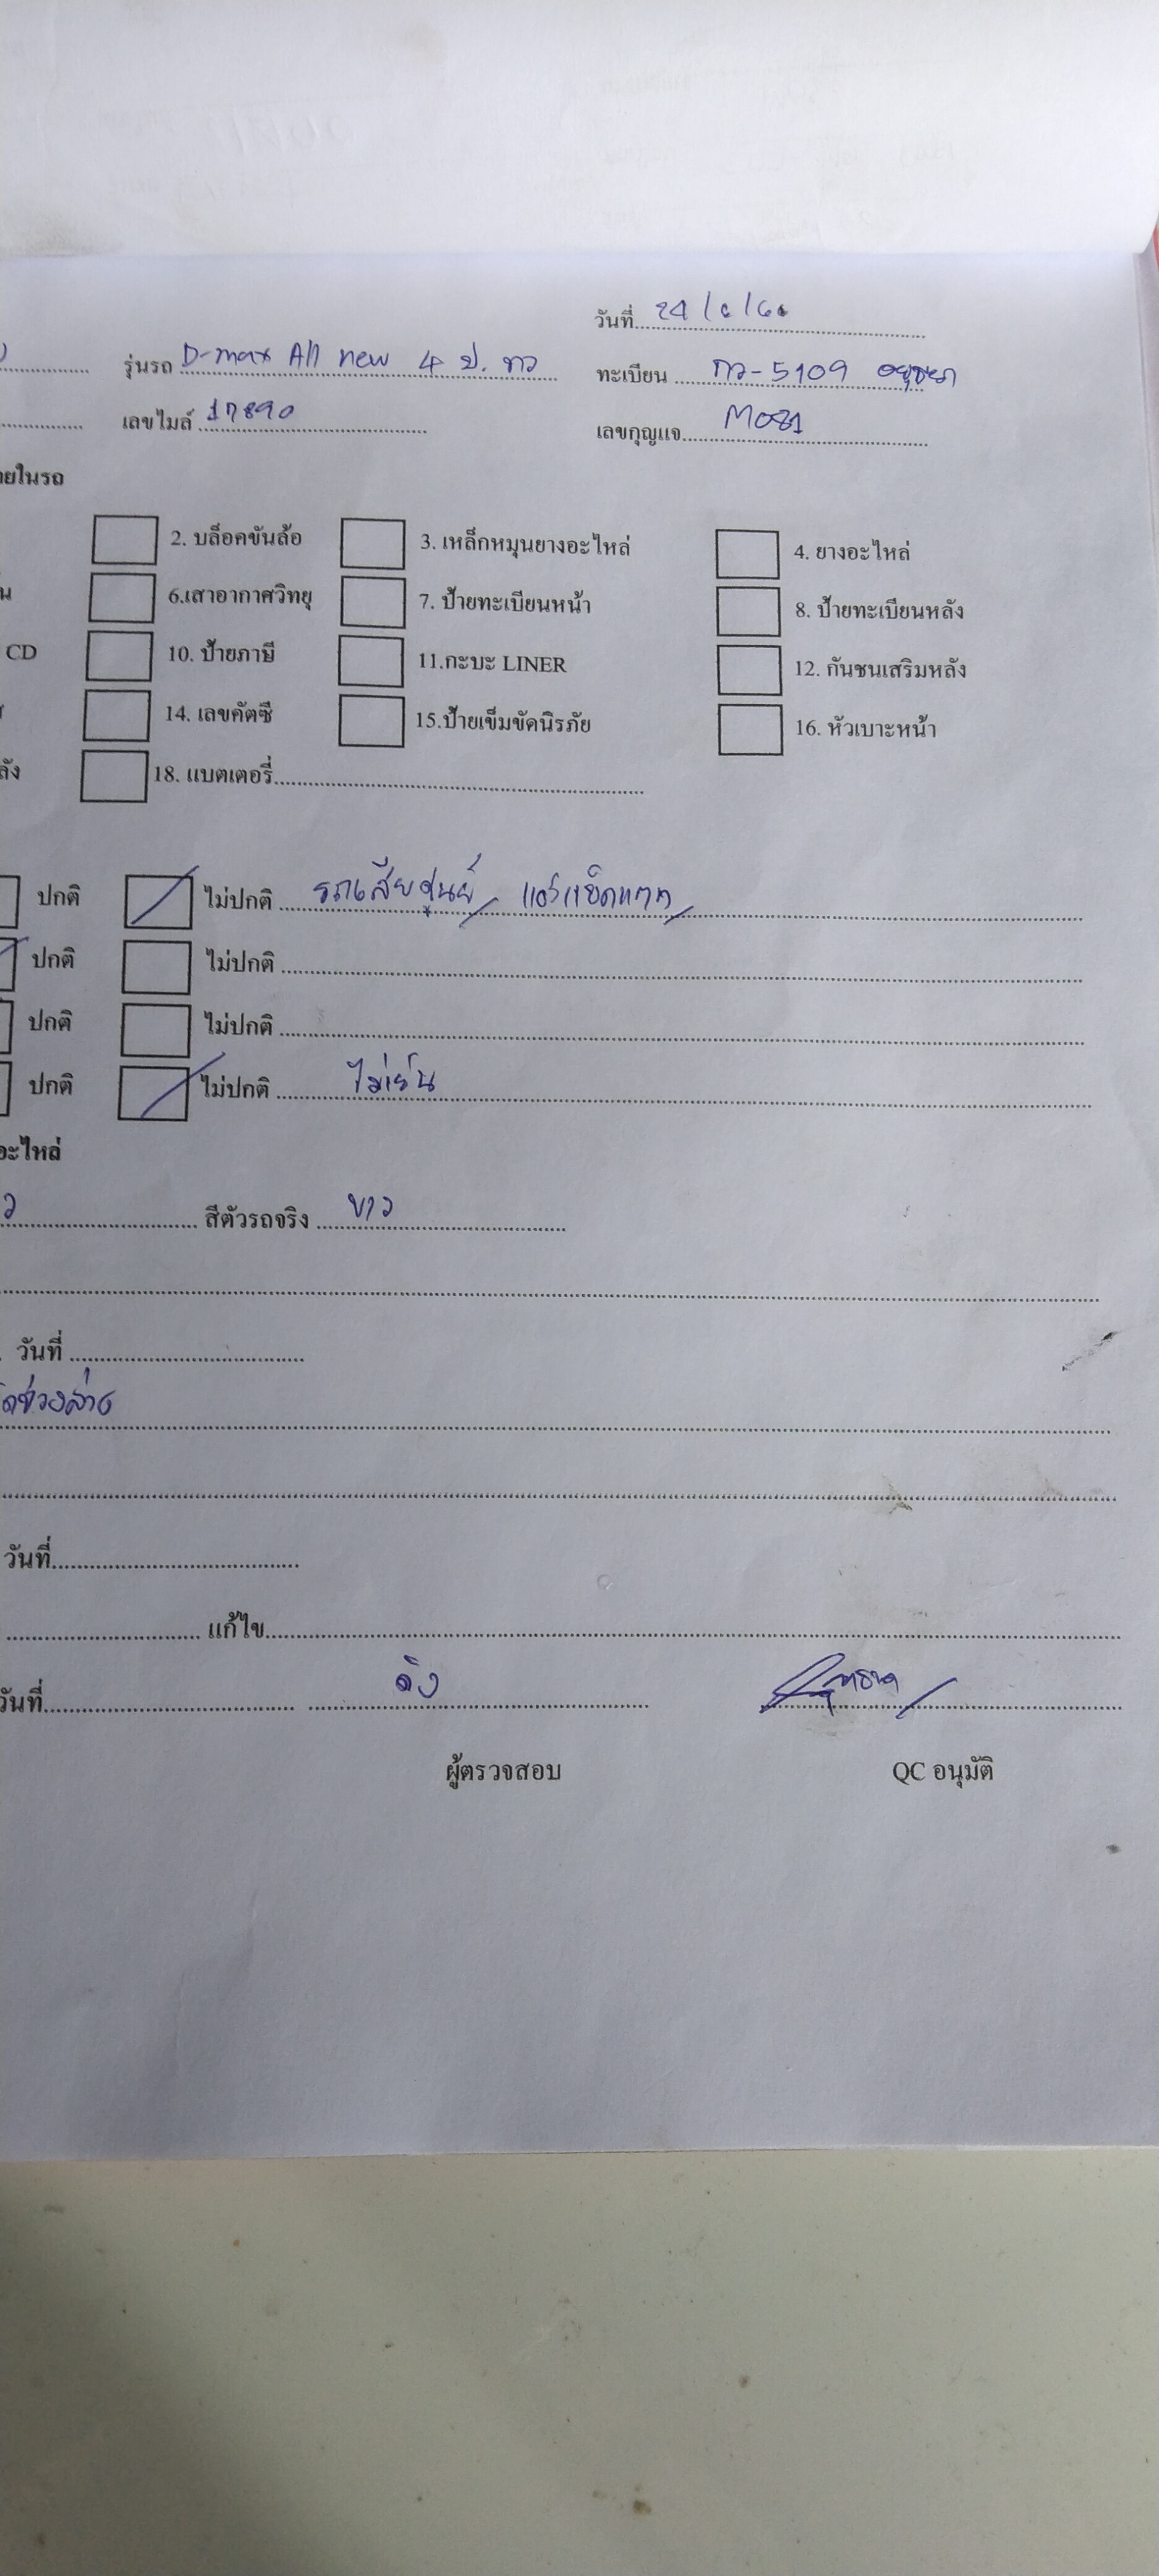 วันที่ 24/6/6
รุ่นรถ D-max All new 4 ป. ขาว ทะเบียน กว-5109 อยุธยา
เลขไมล์ 17890 เลขกุญแจ M081
ายในรถ
2. บล็อคขันล้อ 3. เหล็กหมุนยางอะไหล่ 4. ยางอะไหล่
6.เสาอากาศวิทยุ 7. ป้ายทะเบียนหน้า 8. ป้ายทะเบียนหลัง
CD 10. ป้ายภาษี 11.กะบะ LINER 12. กันชนเสริมหลัง
14. เลขคัตซี 15.ป้ายเข็มขัดนิรภัย 16. หัวเบาะหน้า
ลัง 18. แบตเตอรี่
ปกติ ไม่ปกติ รถเสียศูนย์
ปกติ ไม่ปกติ
ปกติ ไม่ปกติ
ปกติ ไม่ปกติ ไม่เย็น
อะไหล่
ว สีตัวรถจริง ขาว
วันที่
ช่วงล่าง
วันที่
แก้ไข
วันที่
ผู้ตรวจสอบ QC อนุมัติ